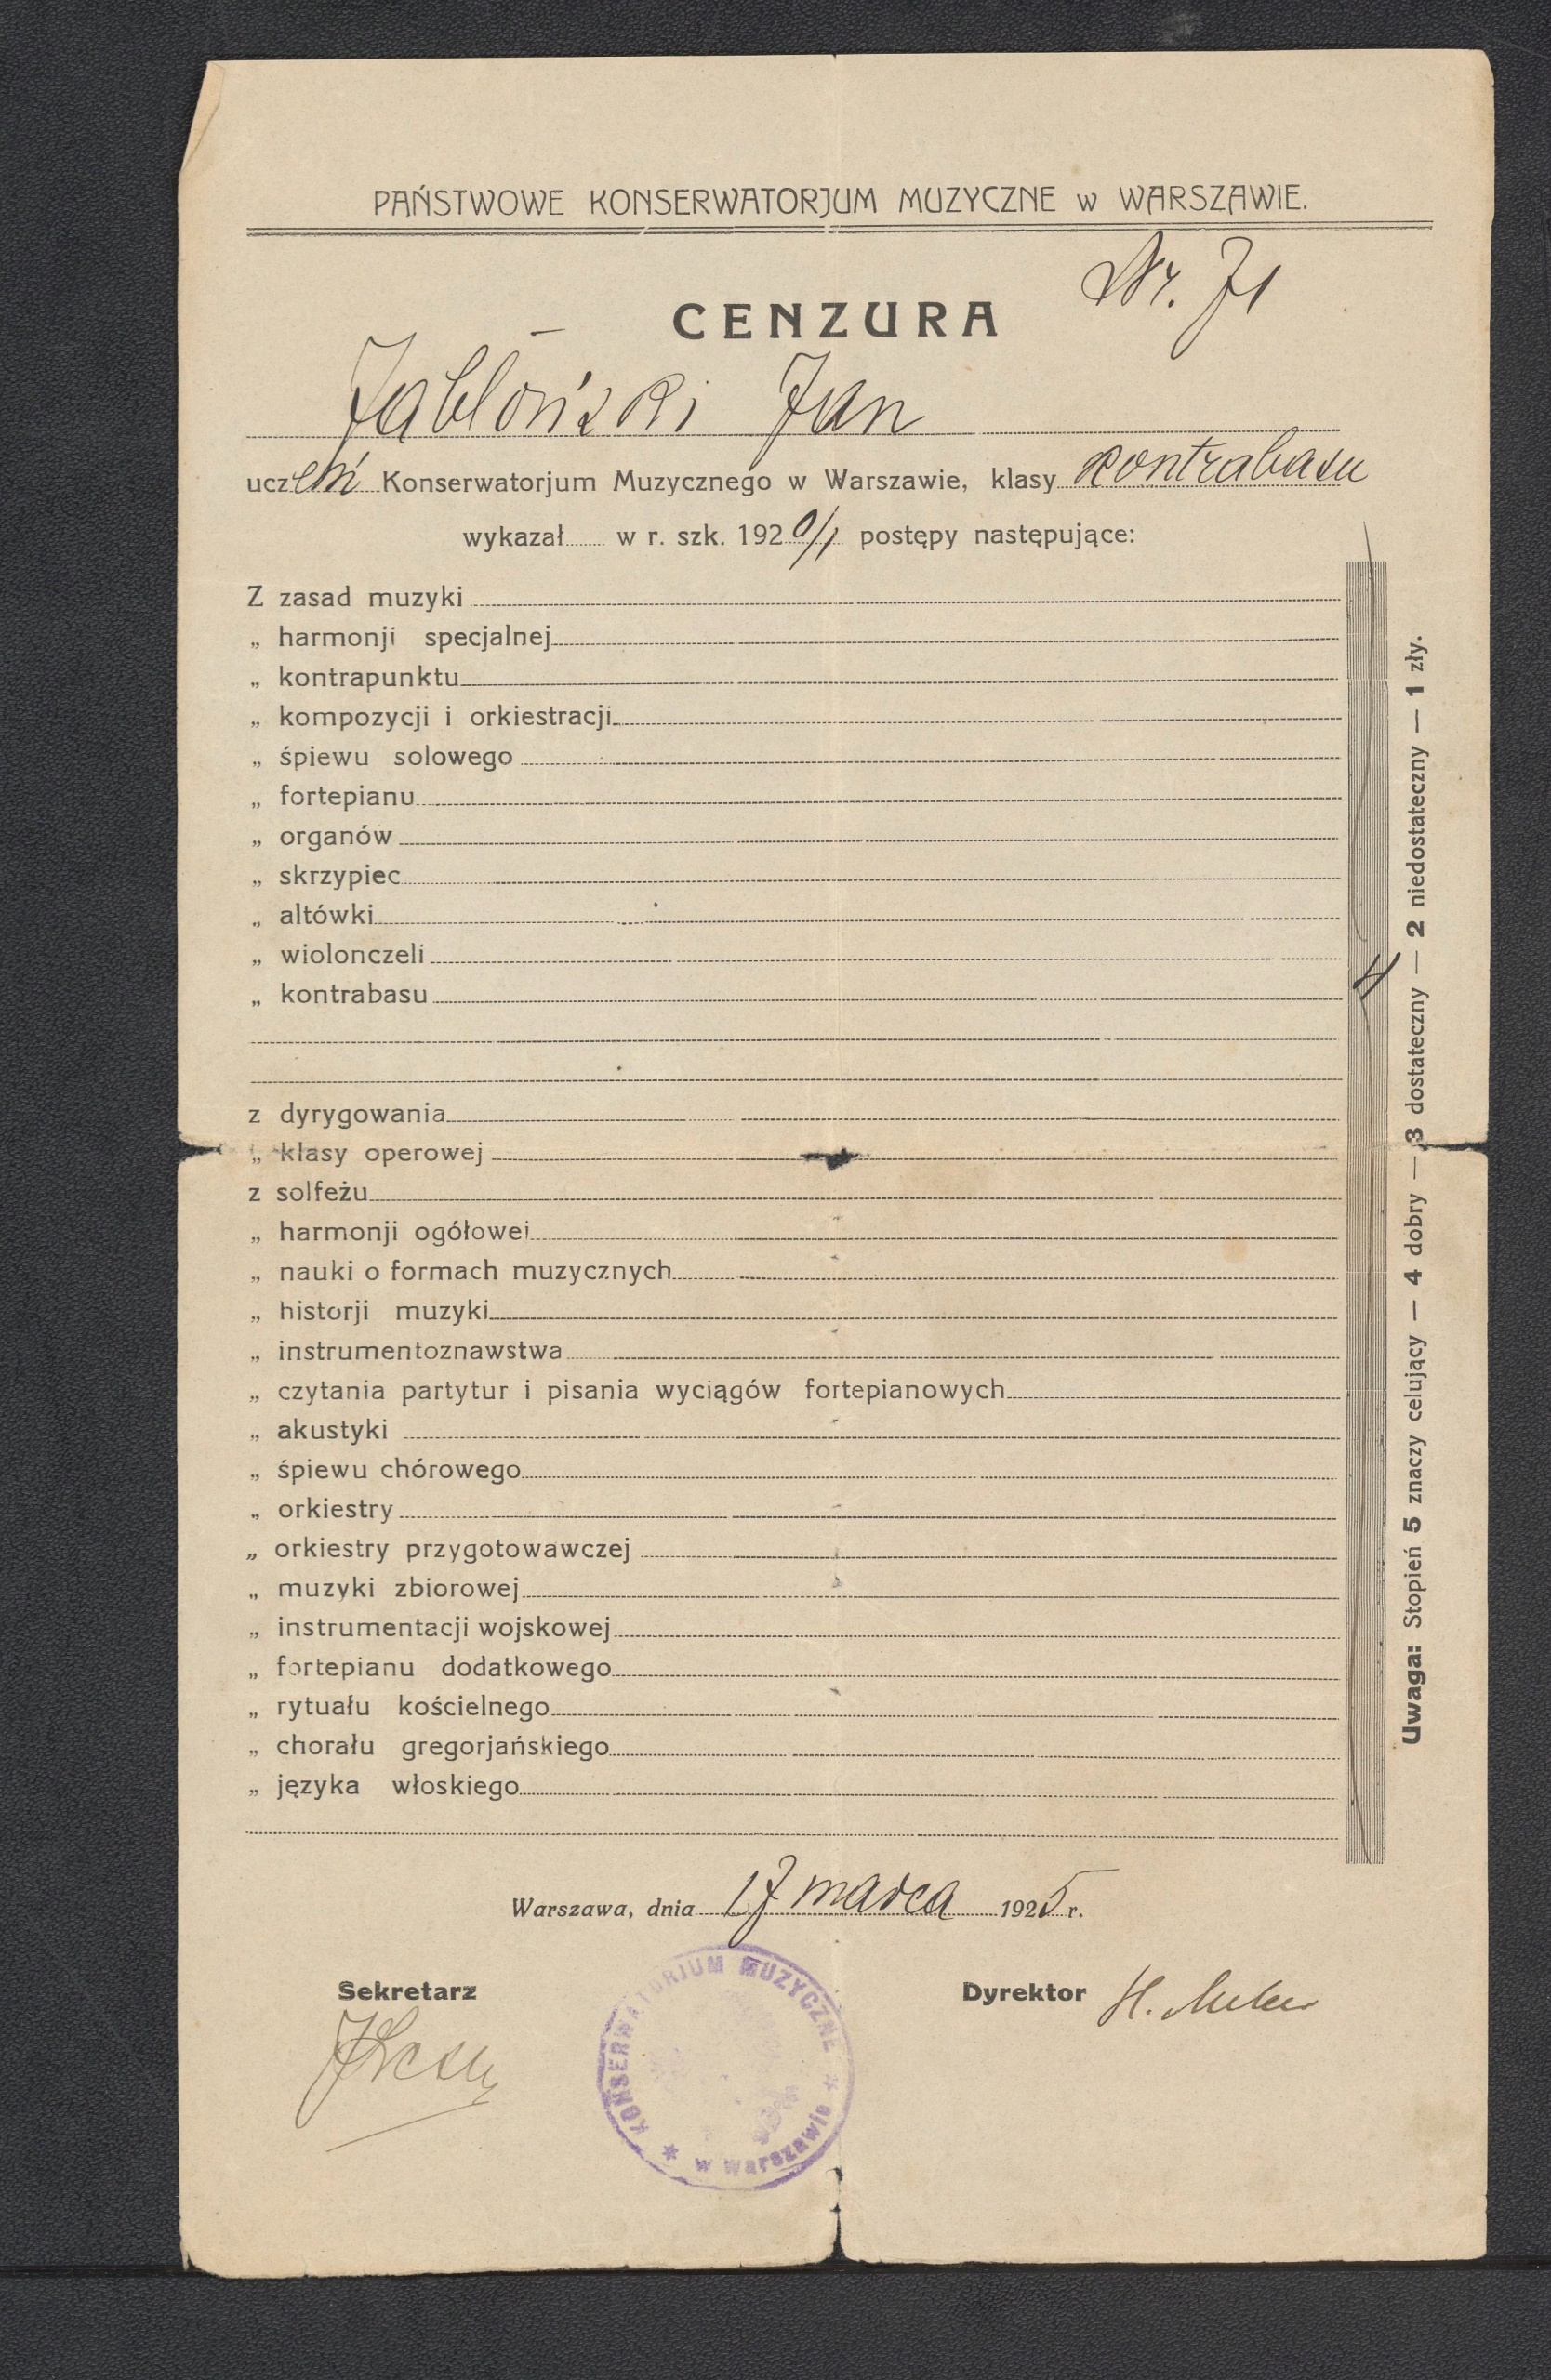 PAŃSTWOWE KONSERWATORJUM MUZYCZNE w WARSZAWIE.
Nr. 71
CENZURA
Jabłoński Jan
uczeń Konserwatorjum Muzycznego w Warszawie, klasy kontrabasu
wykazał w r. szk. 1920/1 postępy następujące:
Z zasad muzyki
„ harmonji specjalnej
„ kontrapunktu
„ kompozycji i orkiestracji
„ śpiewu solowego
„ fortepianu
„ organów
„ skrzypiec
„ altówki
„ wiolonczeli
„ kontrabasu 4
z dyrygowania
„ klasy operowej
z solfeżu
„ harmonji ogółowej
„ nauki o formach muzycznych
„ historji muzyki
„ instrumentoznawstwa
„ czytania partytur i pisania wyciągów fortepianowych
„ akustyki
„ śpiewu chórowego
„ orkiestry
„ orkiestry przygotowawczej
„ muzyki zbiorowej
„ instrumentacji wojskowej
„ fortepianu dodatkowego
„ rytuału kościelnego
„ chorału gregorjańskiego
„ języka włoskiego
Uwaga: Stopień 5 znaczy celujący — 4 dobry — 3 dostateczny — 2 niedostateczny — 1 zły.
Warszawa, dnia 17 marca 1925 r.
Sekretarz
Dyrektor H.
KONSERWATORJUM MUZYCZNE
w Warszawie